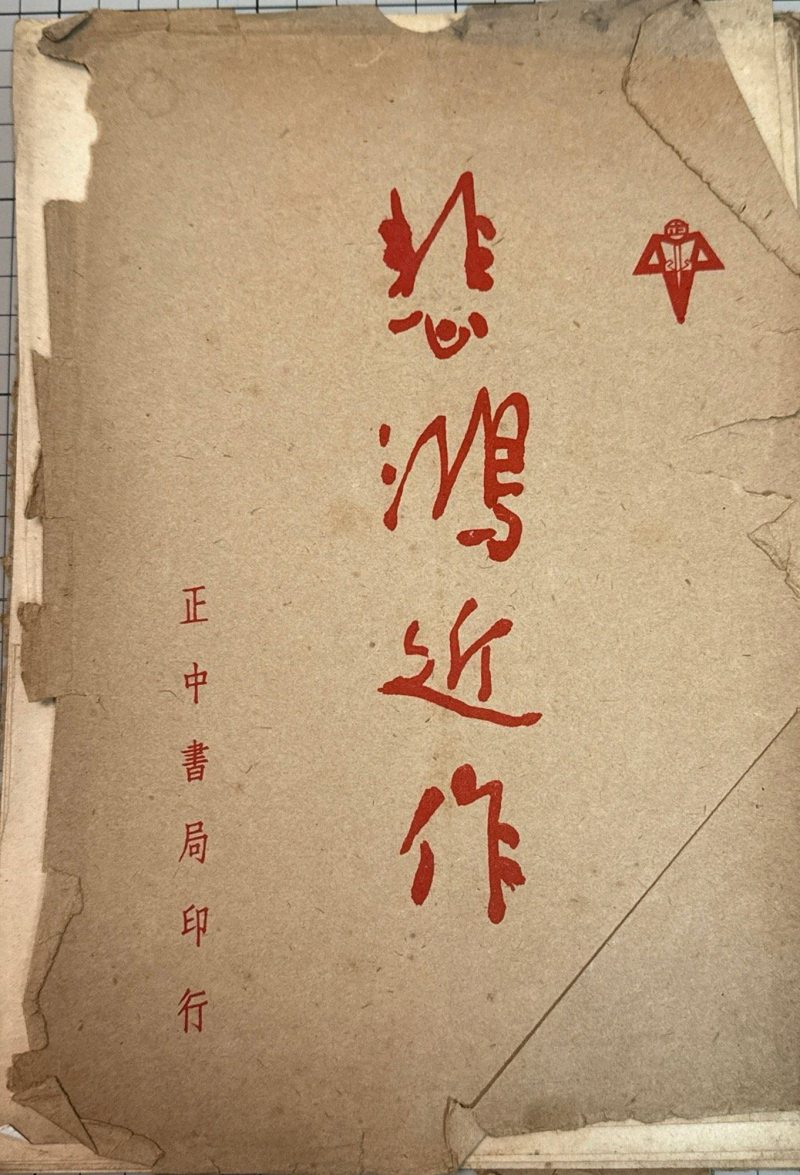 正
悲鴻近作
正中書局印行